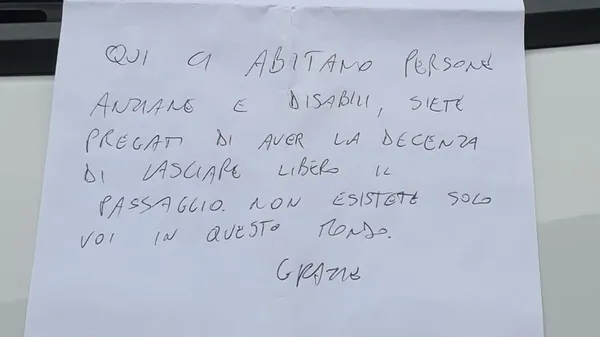 QUI CI ABITANO PERSONE
ANZIANE E DISABILI, SIETE
PREGATI DI AVER LA DECENZA
DI LASCIARE LIBERO IL
PASSAGGIO. NON ESISTETE SOLO
VOI IN QUESTO MONDO.
GRAZIE